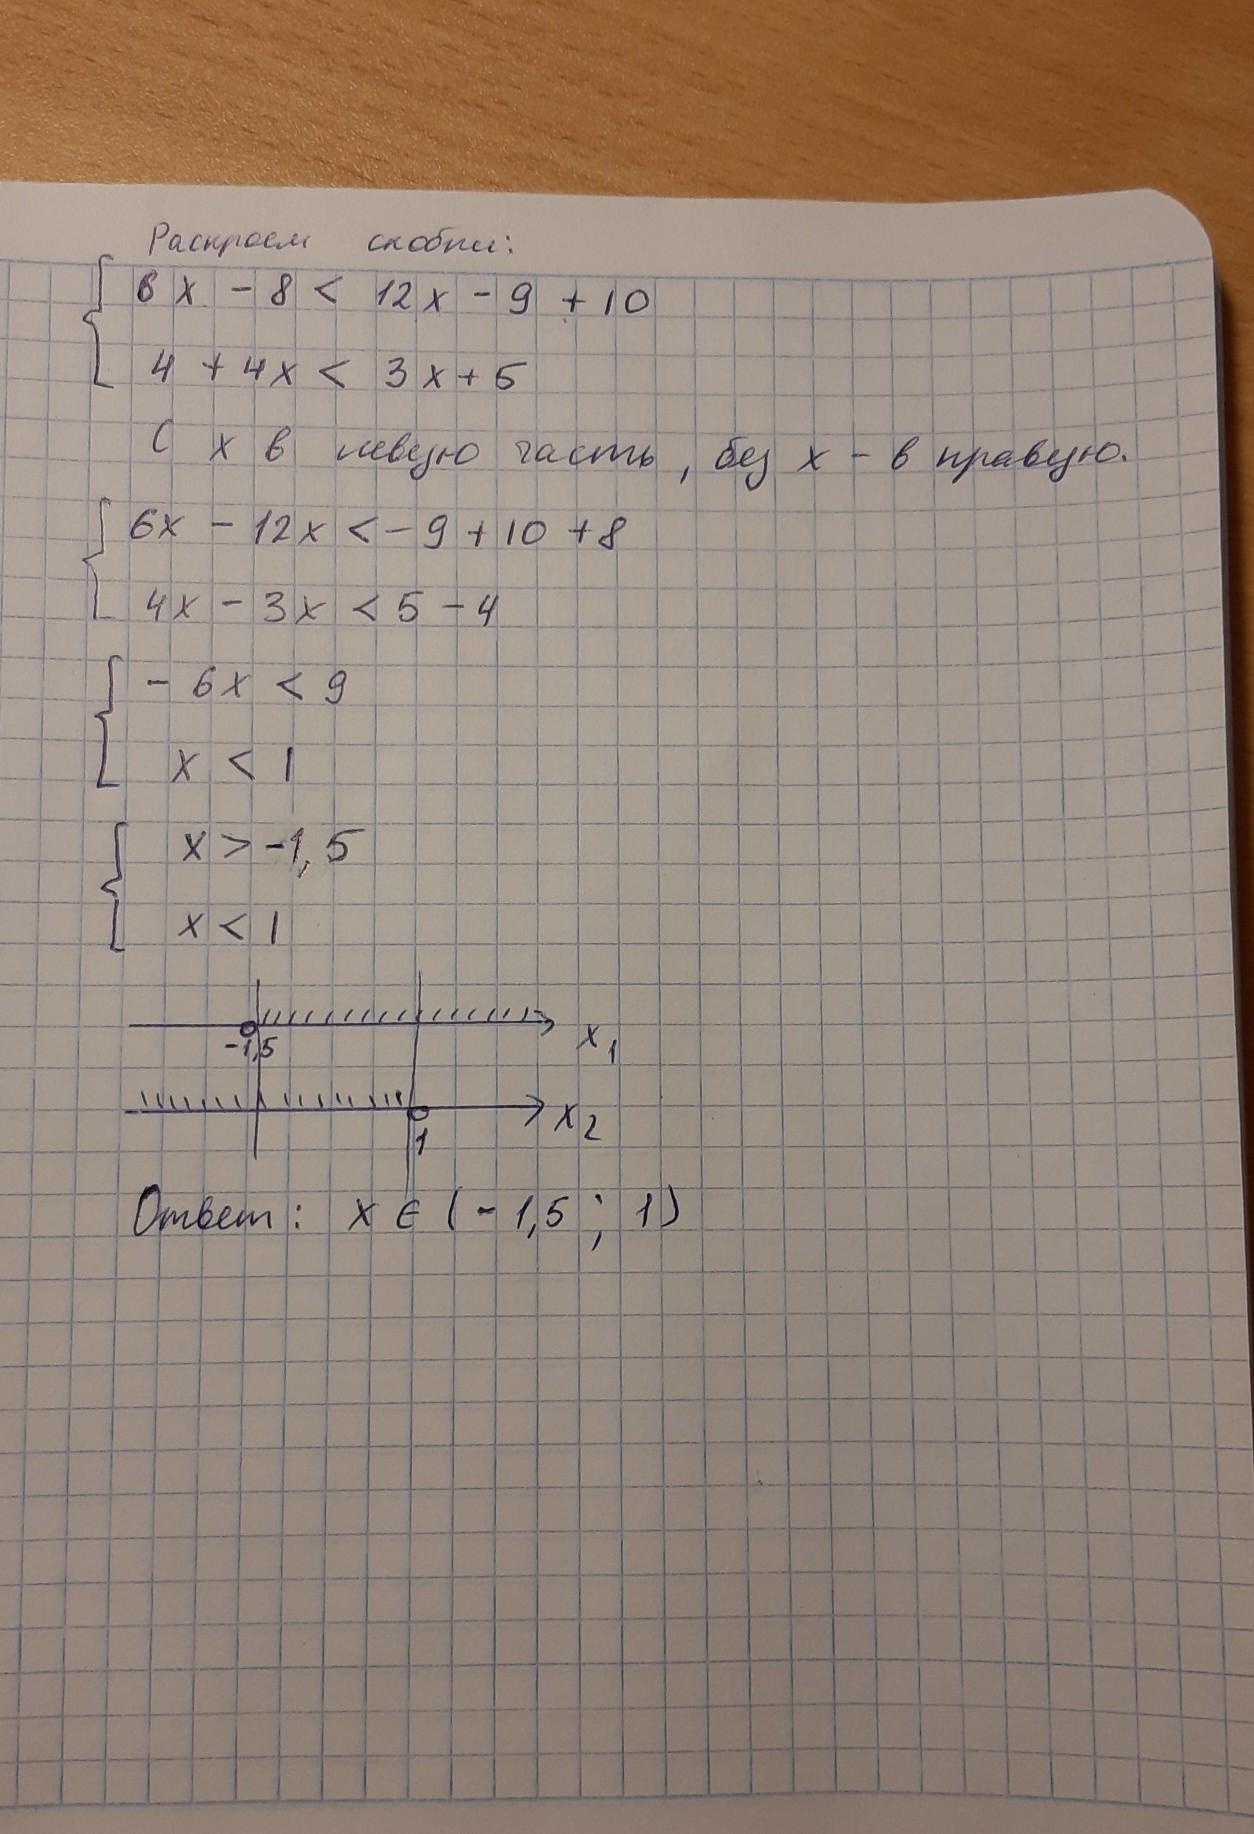 Раскроем скобки:
6x - 8 < 12x - 9 + 10
4 + 4x < 3x + 5
С x в левую часть, без x - в правую.
6x - 12x < - 9 + 10 + 8
4x - 3x < 5 - 4
- 6x < 9
x < 1
x > -1,5
x < 1
-1,5 x₁
1 x₂
Ответ: x ∈ (- 1,5 ; 1)